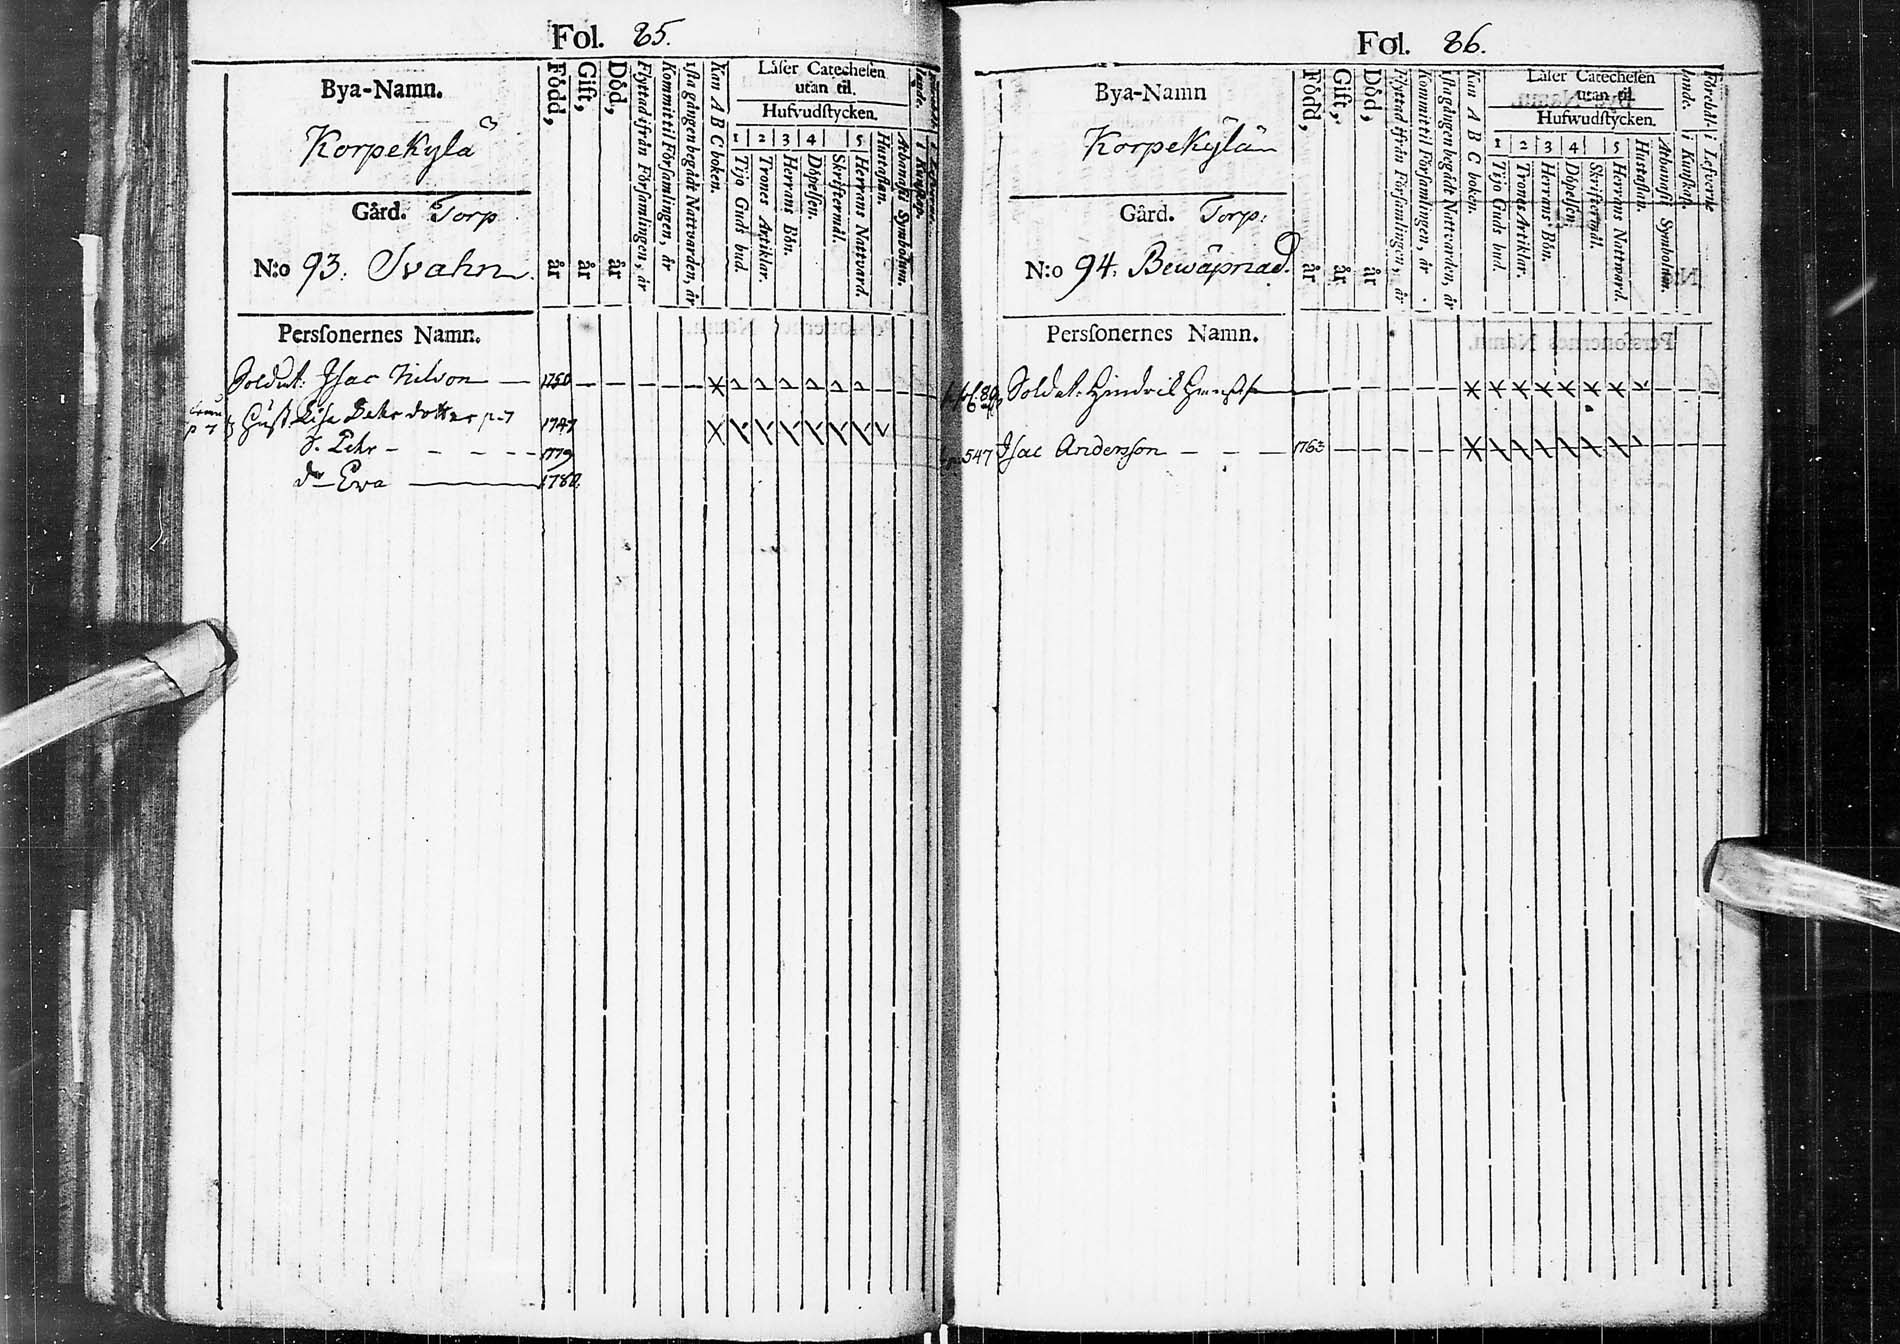 Fol. 85.
Bya-Namn.
Korpekylä
Gård. Torp
N:o 93. Svahn.
Född, år
Gift, år
Död, år
Flyttad ifrån Församlingen, år
Kommit til Församlingen, år
1sta gången begådt Nattvarden, år
Kan A B C boken.
Läser Catechesen
utan til.
Hufvudstycken.
1 2 3 4 5
Tijo Guds bud.
Trones Artiklar.
Herrans Bön.
Döpelsen.
Skriftermål.
Herrans Nattvard.
Hustaflan.
Athanasii Symbolum.
Persſonernes Namn.
Soldat. Isac Nilson — 1750
Hust Lisa Pehrsdotter p. 7 1747
S. Pehr - - - - 1779
dr Ewa — 1780.
Fol. 86.
Bya-Namn
Korpekylän
Gård. Torp.
N:o 94. Bewäpnad.
Född, år
Gift, år
Död, år
Flyttad ifrån Församlingen, år
Kommit til Församlingen, år
1sta gången begådt Nattvarden, år
Kan A B C boken.
Läser Catechesen
utan til.
Hufwudstycken.
1 2 3 4 5
Tijo Guds bud.
Trones Artiklar.
Herrans Bön.
Döpelsen
Skriftermål.
Herrans Nattvard.
Hustaflan.
Athanasii Symbolum.
i Kunskap.
i Lefverne
Persſonernes Namn.
Soldat. Hindric
547 Isac Andersson - - - 1763